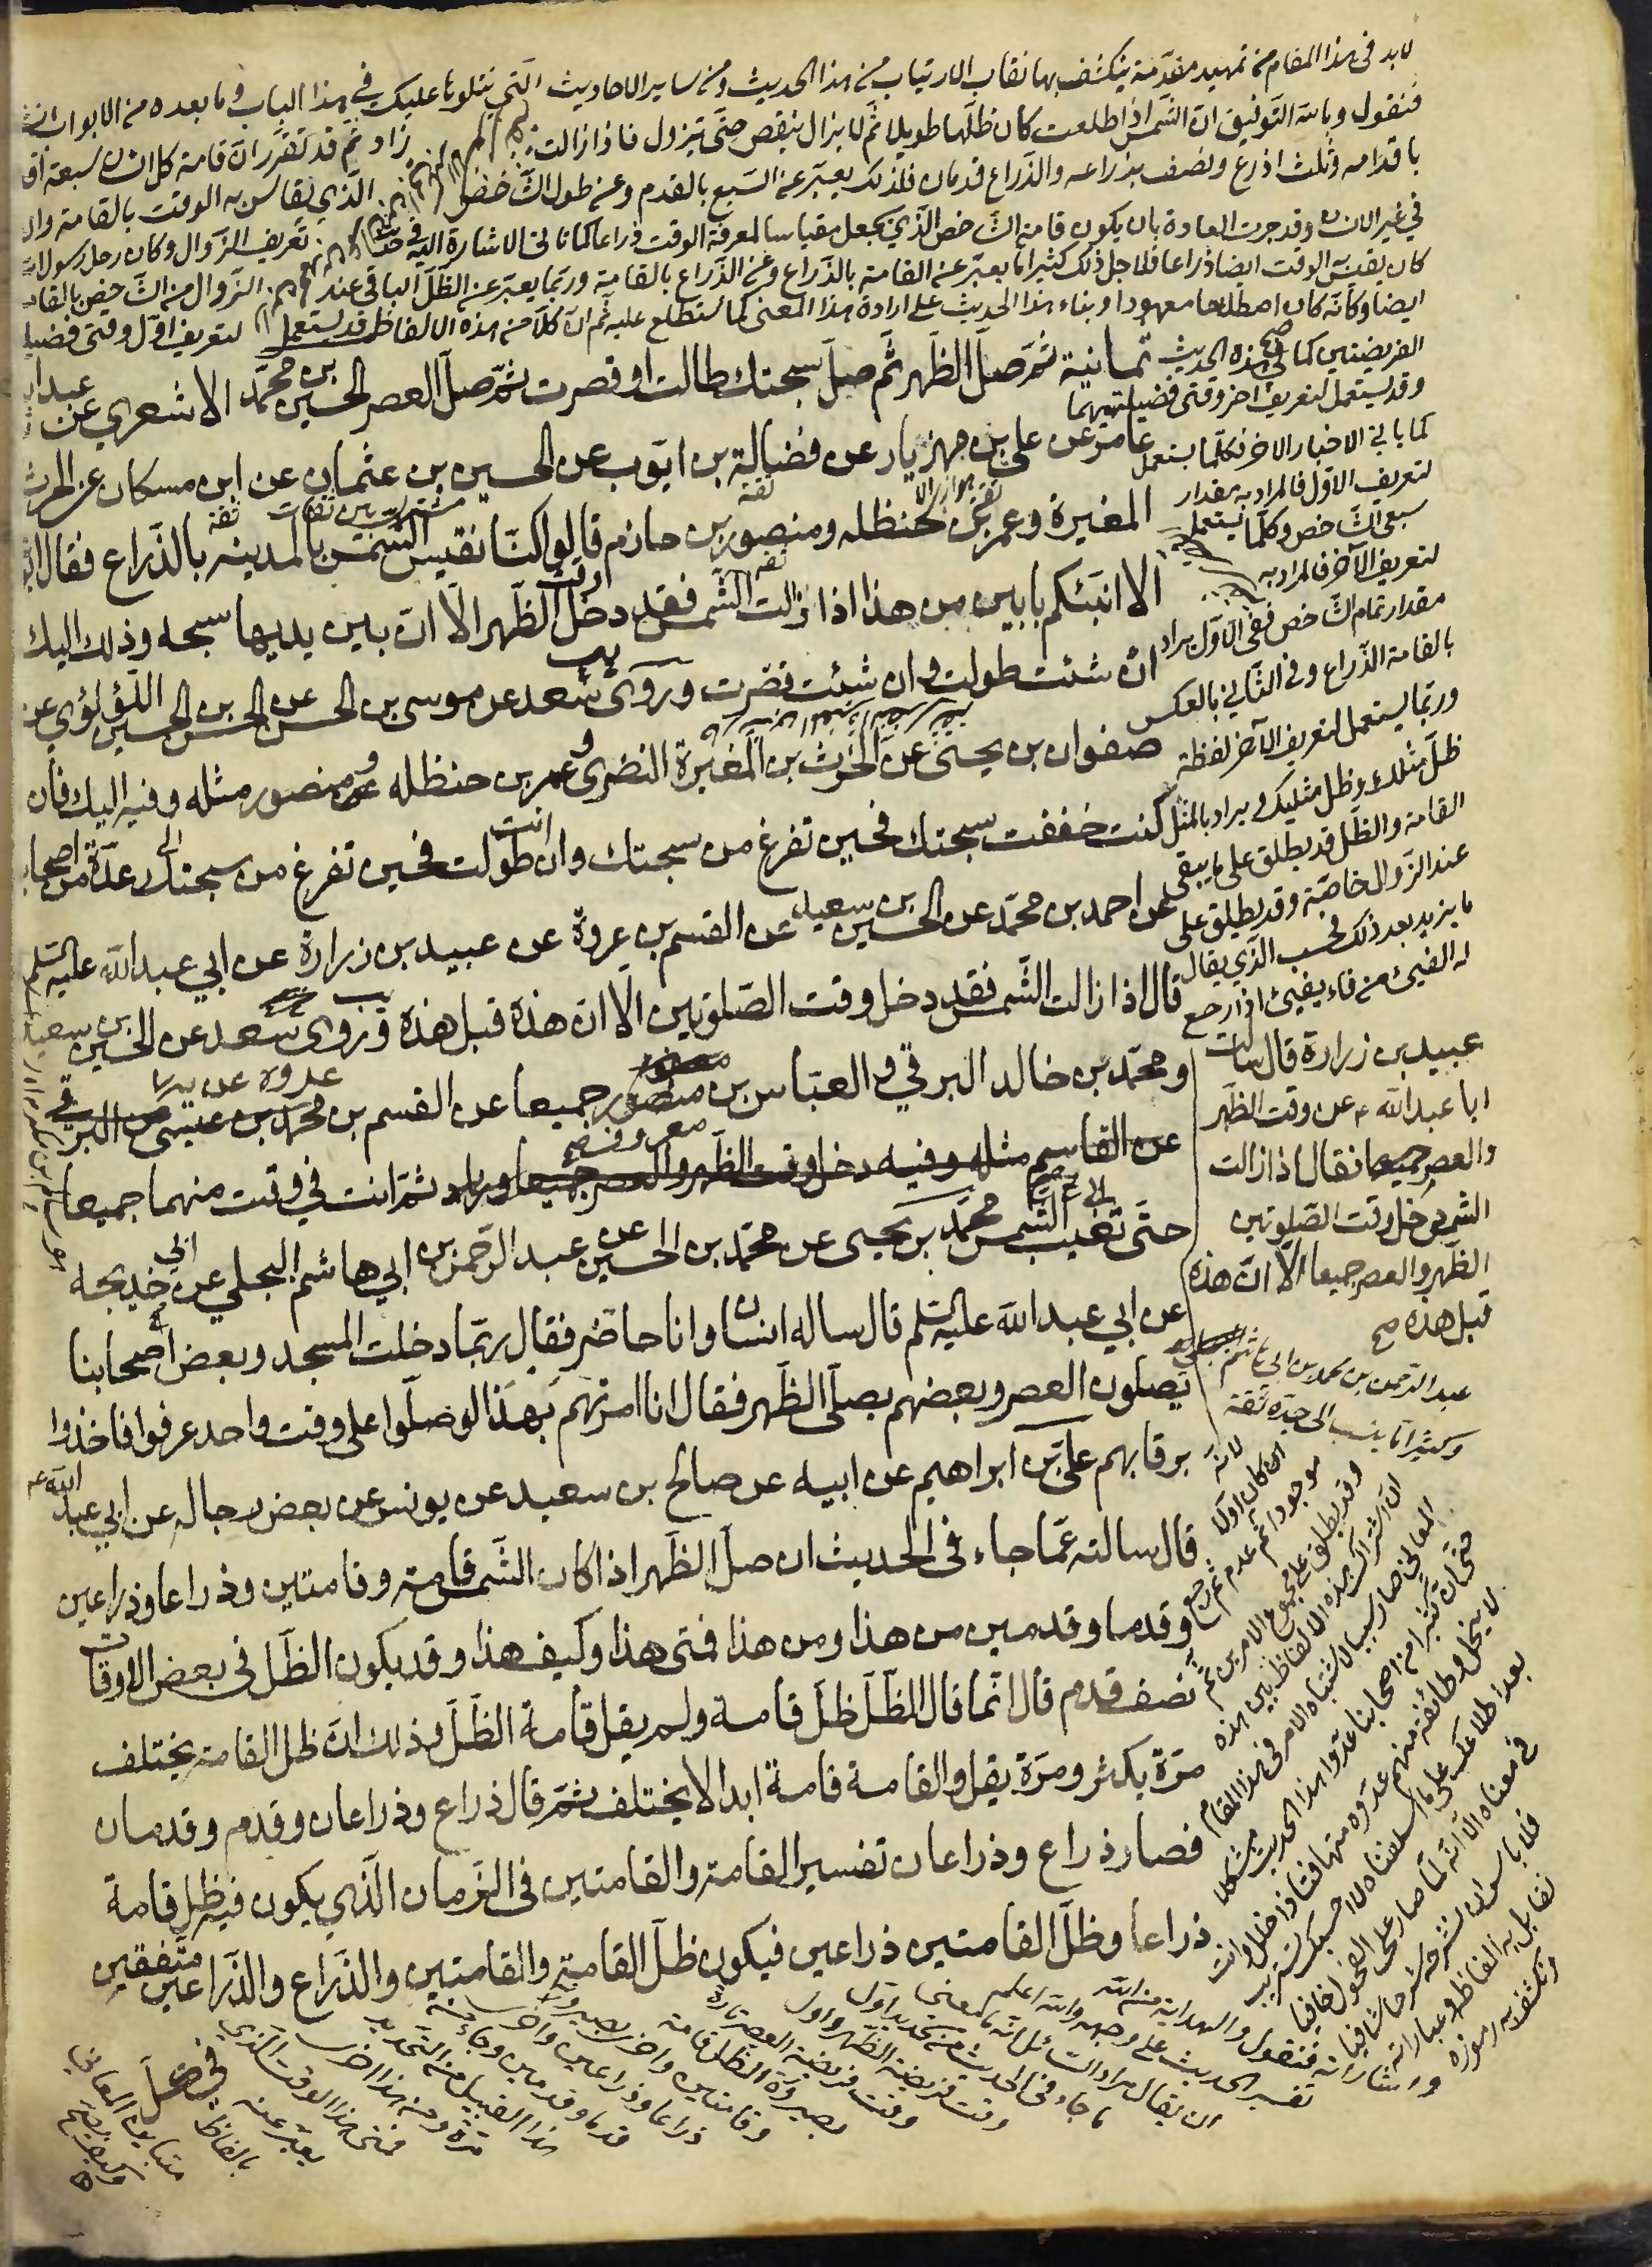 لا بد فى هذا المقام من تمهيد مقدمة ينكشف بها نقاب الارتياب من هذا الحديث ومن ساير الاحاديث التي نتلوها عليك في هذا الباب وما بعده من الابواب
فنقول وبالله التوفيق ان الشمس اذا طلعت كان ظلها طويلا ثم لا يزال ينقص حتى تزول فاذا زالت زاد ثم قد تقرر ان قامة كل انسان سبعة
باقدامه وثلث اذرع ونصف بذراعه والذراع قدمان فلذلك يعبر عن السبع بالقدم وعن طول الشاخص الذي يقاس به الوقت بالقامة وان
في غير الانسان وقد جرت العادة بان يكون قامة الشاخص الذي يجعل مقياسا لمعرفة الوقت ذراعا كما ياتي الاشارة اليه في تعريف الزوال وكان رحل رسول الله
كان يقيس الوقت ايضا ذراعا فلاجل ذلك كثيرا ما يعبر عن القامة بالذراع وعن الذراع بالقامة وربما يعبر عن الظل الباقي عند الزوال من الشاخص بالقامة
ايضا وكانه كان اصطلاحا معهودا وبناء هذا الحديث على ارادة هذا المعنى كما ستطلع عليه ثم ان كلا من هذه الالفاظ قد يستعمل لتعريف اول وقتى فضيلة
الفريضتين كما في هذه الحديث
وقد يستعمل لتعريف اخر وقتى فضيلتهما
كما ياتي الاخبار الاخر فكلما يستعمل
لتعريف الاول فالمراد به مقدار
سبعي الشاخص وكلما يستعمل
لتعريف الآخر فالمراد به
مقدار تمام الشاخص ففى الاول يراد
بالقامة الذراع وفى الثاني بالعكس
وربما يستعمل لتعريف الآخر لفظة
ظل مثلك وظل مثليك ويراد بالمثل
القامة والظل قد يطلق على ما يبقى
عند الزوال خاصة وقد يطلق على
ما يزيد بعد ذلك فحسب الذي يقال
له الفيئ من فاء يفيئ اذا رجع
ثمانية ثم صل الظهر ثم صل سبحتك طالت او قصرت ثم صل العصر الحسين بن محمد الاشعري عن عبدالله
عامر عن علي بن مهزيار عن فضالة بن ايوب عن الحسين بن عثمان عن ابن مسكان عن الحرث
المغيرة وعمر بن حنظله ومنصور بن حازم قالوا كنا نقيس الشمس بالمدينه بالذراع فقال
الا انبئكم بابين من هذا اذا زالت الشمس فقد دخل وقت الظهر الا ان بين يديها سبحه وذلك اليك
ان شئت طولت وان شئت قصرت وروى سعد عن موسى بن الحسن عن الحسن بن الحسين اللؤلؤي عن
صفوان بن يحيى عن الحرث بن المغيرة النضرى وعمر بن حنظله ومنصور مثله وفيه اليك فان
كنت خففت سبحتك فحين تفرغ من سبحتك وان انت طولت فحين تفرغ من سبحتك عدة من اصحابنا
عن احمد بن محمد عن الحسين بن سعيد عن القسم بن عروة عن عبيد بن زرارة عن ابي عبدالله عليه السلم
قال اذا زالت الشمس فقد دخل وقت الصلوتين الا ان هذه قبل هذه وروى سعد عن الحسين بن سعيد
ومحمد بن خالد البرقي والعباس بن معروف جميعا عن القسم بن عروة
عن القاسم مثله وفيه دخل وقت الظهر والعصر جميعا وزاد ثم انت في وقت منهما جميعا
حتى تغيب الشمس محمد بن يحيى عن محمد بن الحسين عن عبد الرحمن بن ابي هاشم البجلي عن ابي خديجه
عن ابي عبدالله عليه السلم قال ساله انسان وانا حاضر فقال ربما دخلت المسجد وبعض اصحابنا
يصلون العصر وبعضهم يصلى الظهر فقال انا امرتهم بهذا لو صلوا على وقت واحد عرفوا فاخذوا
برقابهم علي بن ابراهيم عن ابيه عن صالح بن سعيد عن يونس عن بعض رجاله عن ابي عبد الله ع
قال سالته عما جاء فى الحديث ان صل الظهر اذا كانت الشمس قامة وقامتين وذراعا وذراعين
وقدما وقدمين من هذا ومن هذا فمتى هذا وكيف هذا وقد يكون الظل فى بعض الاوقات
نصف قدم قال انما قال ظل القامة ولم يقل قامة الظل وذلك ان ظل القامة يختلف
مرة يكثر ومرة يقل والقامة قامة ابدا لا يختلف ثم قال ذراع وذراعان وقدم وقدمان
فصار ذراع وذراعان تفسير القامة والقامتين فى الزمان الذي يكون فيه ظل قامة
ذراعا وظل القامتين ذراعين فيكون ظل القامة والقامتين والذراع والذراعين متفقين
في كل
عبيد بن زرارة قال سالت
ابا عبدالله ع عن وقت الظهر
والعصر جميعا فقال اذا زالت
الشمس دخل وقت الصلوتين
الظهر والعصر جميعا الا ان هذه
قبل هذه صح
عبد الرحمن بن محمد بن ابي هاشم
وكثيرا ما ينسب الى جده ثقة
لانه
ان كان اولا
موجودا ثم عدم ثم رجع
وقد يطلق على مجموع الامرين ثم
ان اشتراك هذه الالفاظ بين هذه
المعاني صار سببا لاشتباه الامر فى هذا المقام
حتى ان كثيرا من اصحابنا عدوا هذا الحديث مشكلا
لا ينحل وطائفة منهم عدوه متهافتا ذا خلل وانت
بعد اطلاعك على ما اسلفناه لا احسبك تستريب
في معناه الا انه لما صار على الفحول خافيا
فلا باس ان نشرحه شرحا شافيا
نقابل به الفاظه وعباراته
ونكشف به رموزه
واشاراته فنقول والهداية من الله
تفسير الحديث على وجهه والله اعلم
ان يقال مراد السائل انه ما معنى
ما جاء فى الحديث من تحديد اول
وقت فريضة الظهر واول
وقت فريضة العصر تارة
بصيرورة الظل قامة
وقامتين واخرى بصيرورته
ذراعا وذراعين واخرى
قدما وقدمين وجاء من
هذا القبيل من التحديد
مرة ومن هذا اخرى
فمتى هذا الوقت الذي
يعبر عنه
بالفاظ
متباينة المعاني
وكيف يصح